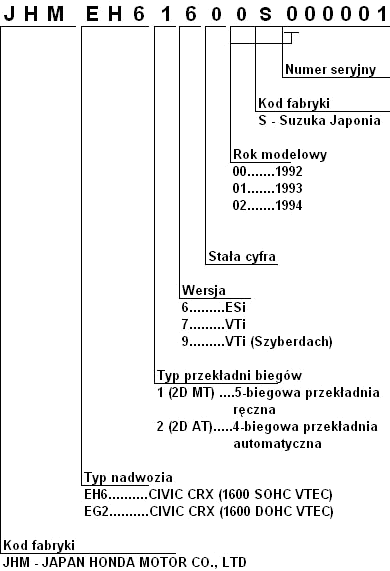 JHM EH6 1 6 0 0 S 000001
Numer seryjny
Kod fabryki
S - Suzuka Japonia
Rok modelowy
00.......1992
01.......1993
02.......1994
Stała cyfra
Wersja
6.........ESi
7.........VTi
9.........VTi (Szyberdach)
Typ przekładni biegów
1 (2D MT) ....5-biegowa przekładnia
ręczna
2 (2D AT).....4-biegowa przekładnia
automatyczna
Typ nadwozia
EH6..........CIVIC CRX (1600 SOHC VTEC)
EG2..........CIVIC CRX (1600 DOHC VTEC)
Kod fabryki
JHM - JAPAN HONDA MOTOR CO., LTD